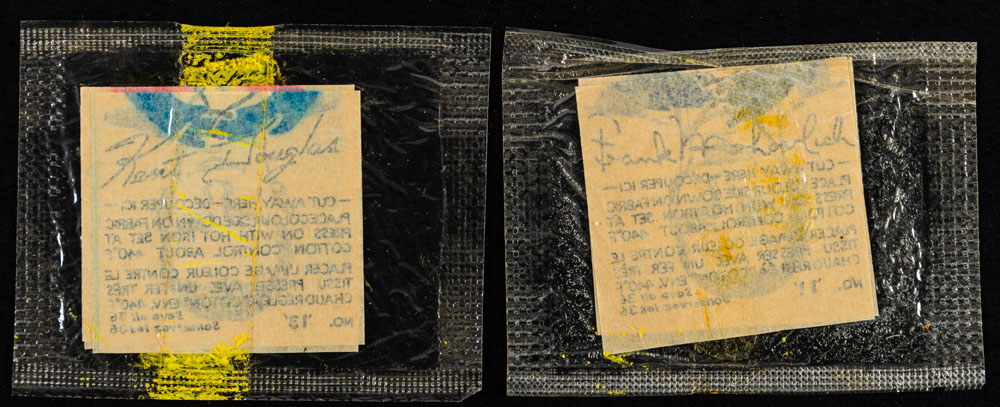 Kent Douglas
— CUT AWAY HERE – DECOUPER ICI —
PLACE COLOUR SIDE DOWN ON FABRIC
PRESS ON WITH HOT IRON SET AT
COTTON CONTROL ABOUT 440°F
PLACER L'IMAGE COLEUR CONTRE LE
TISSU PRESSER AVEC UN FER TRÈS
CHAUD REGLER "COTTON" ENV. 440°F
Save all 36
NO. 13 Conservez les 36
Frank Mahovlich
— CUT AWAY HERE – DECOUPER ICI —
PLACE COLOUR SIDE DOWN ON FABRIC
PRESS ON WITH HOT IRON SET AT
COTTON CONTROL ABOUT 440°F
PLACER L'IMAGE COLEUR CONTRE LE
TISSU PRESSER AVEC UN FER TRÈS
CHAUD 440°F
Save all 36
NO. Conservez les 36